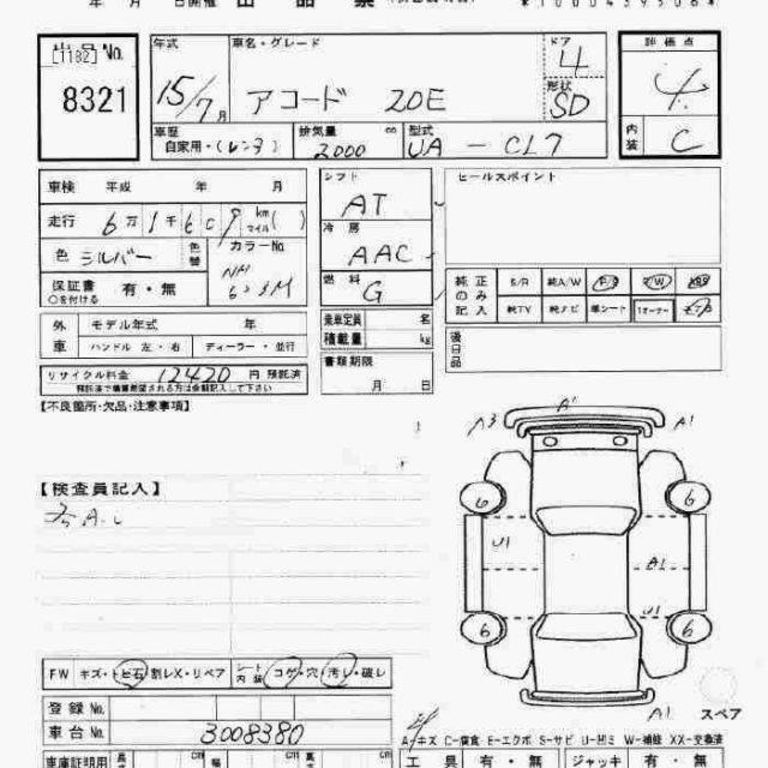 年 月 日開催 出品票
*10004395068*
出品No.
[1182]
8321
年式 車名・グレード ドア
15/7月 アコード 20E 4
形状
SD
評価点
4
内装 C
車歴 排気量 cc 型式
自家用・(レンタ) 2000 UA-CL7
車検 平成 年 月
走行 6万1千609 km マイル( )
色 シルバー 色替 カラーNo.
保証書 有・無
○を付ける
シフト
AT
冷房
AAC
燃料
G
セールスポイント
純正のみ記入 S/R 純A/W P/S P/W ABS
純TV 純ナビ 革シート 1オーナー エアB
外車 モデル年式 年
ハンドル 左・右 ディーラー・並行
乗車定員 名
積載量 kg
書類期限
月 日
後日品
リサイクル料金 12420 円 預託済
預託済で備算希望される方は金額記入して下さい
【不良箇所・欠品・注意事項】
【検査員記入】
A3 A1 A1
6 6
U1 A1
U1
6 6
A1 スペア
FW キズ・トビ石・割レX・リペア シート内装 コゲ・穴・汚レ・破レ
登録No.
車台No. 3008380
A-キズ C-腐食 E-エクボ S-サビ U-凹ミ W-補修 XX-交換済
車庫証明用 長さ cm 幅 cm 高さ cm
工具 有・無 ジャッキ 有・無